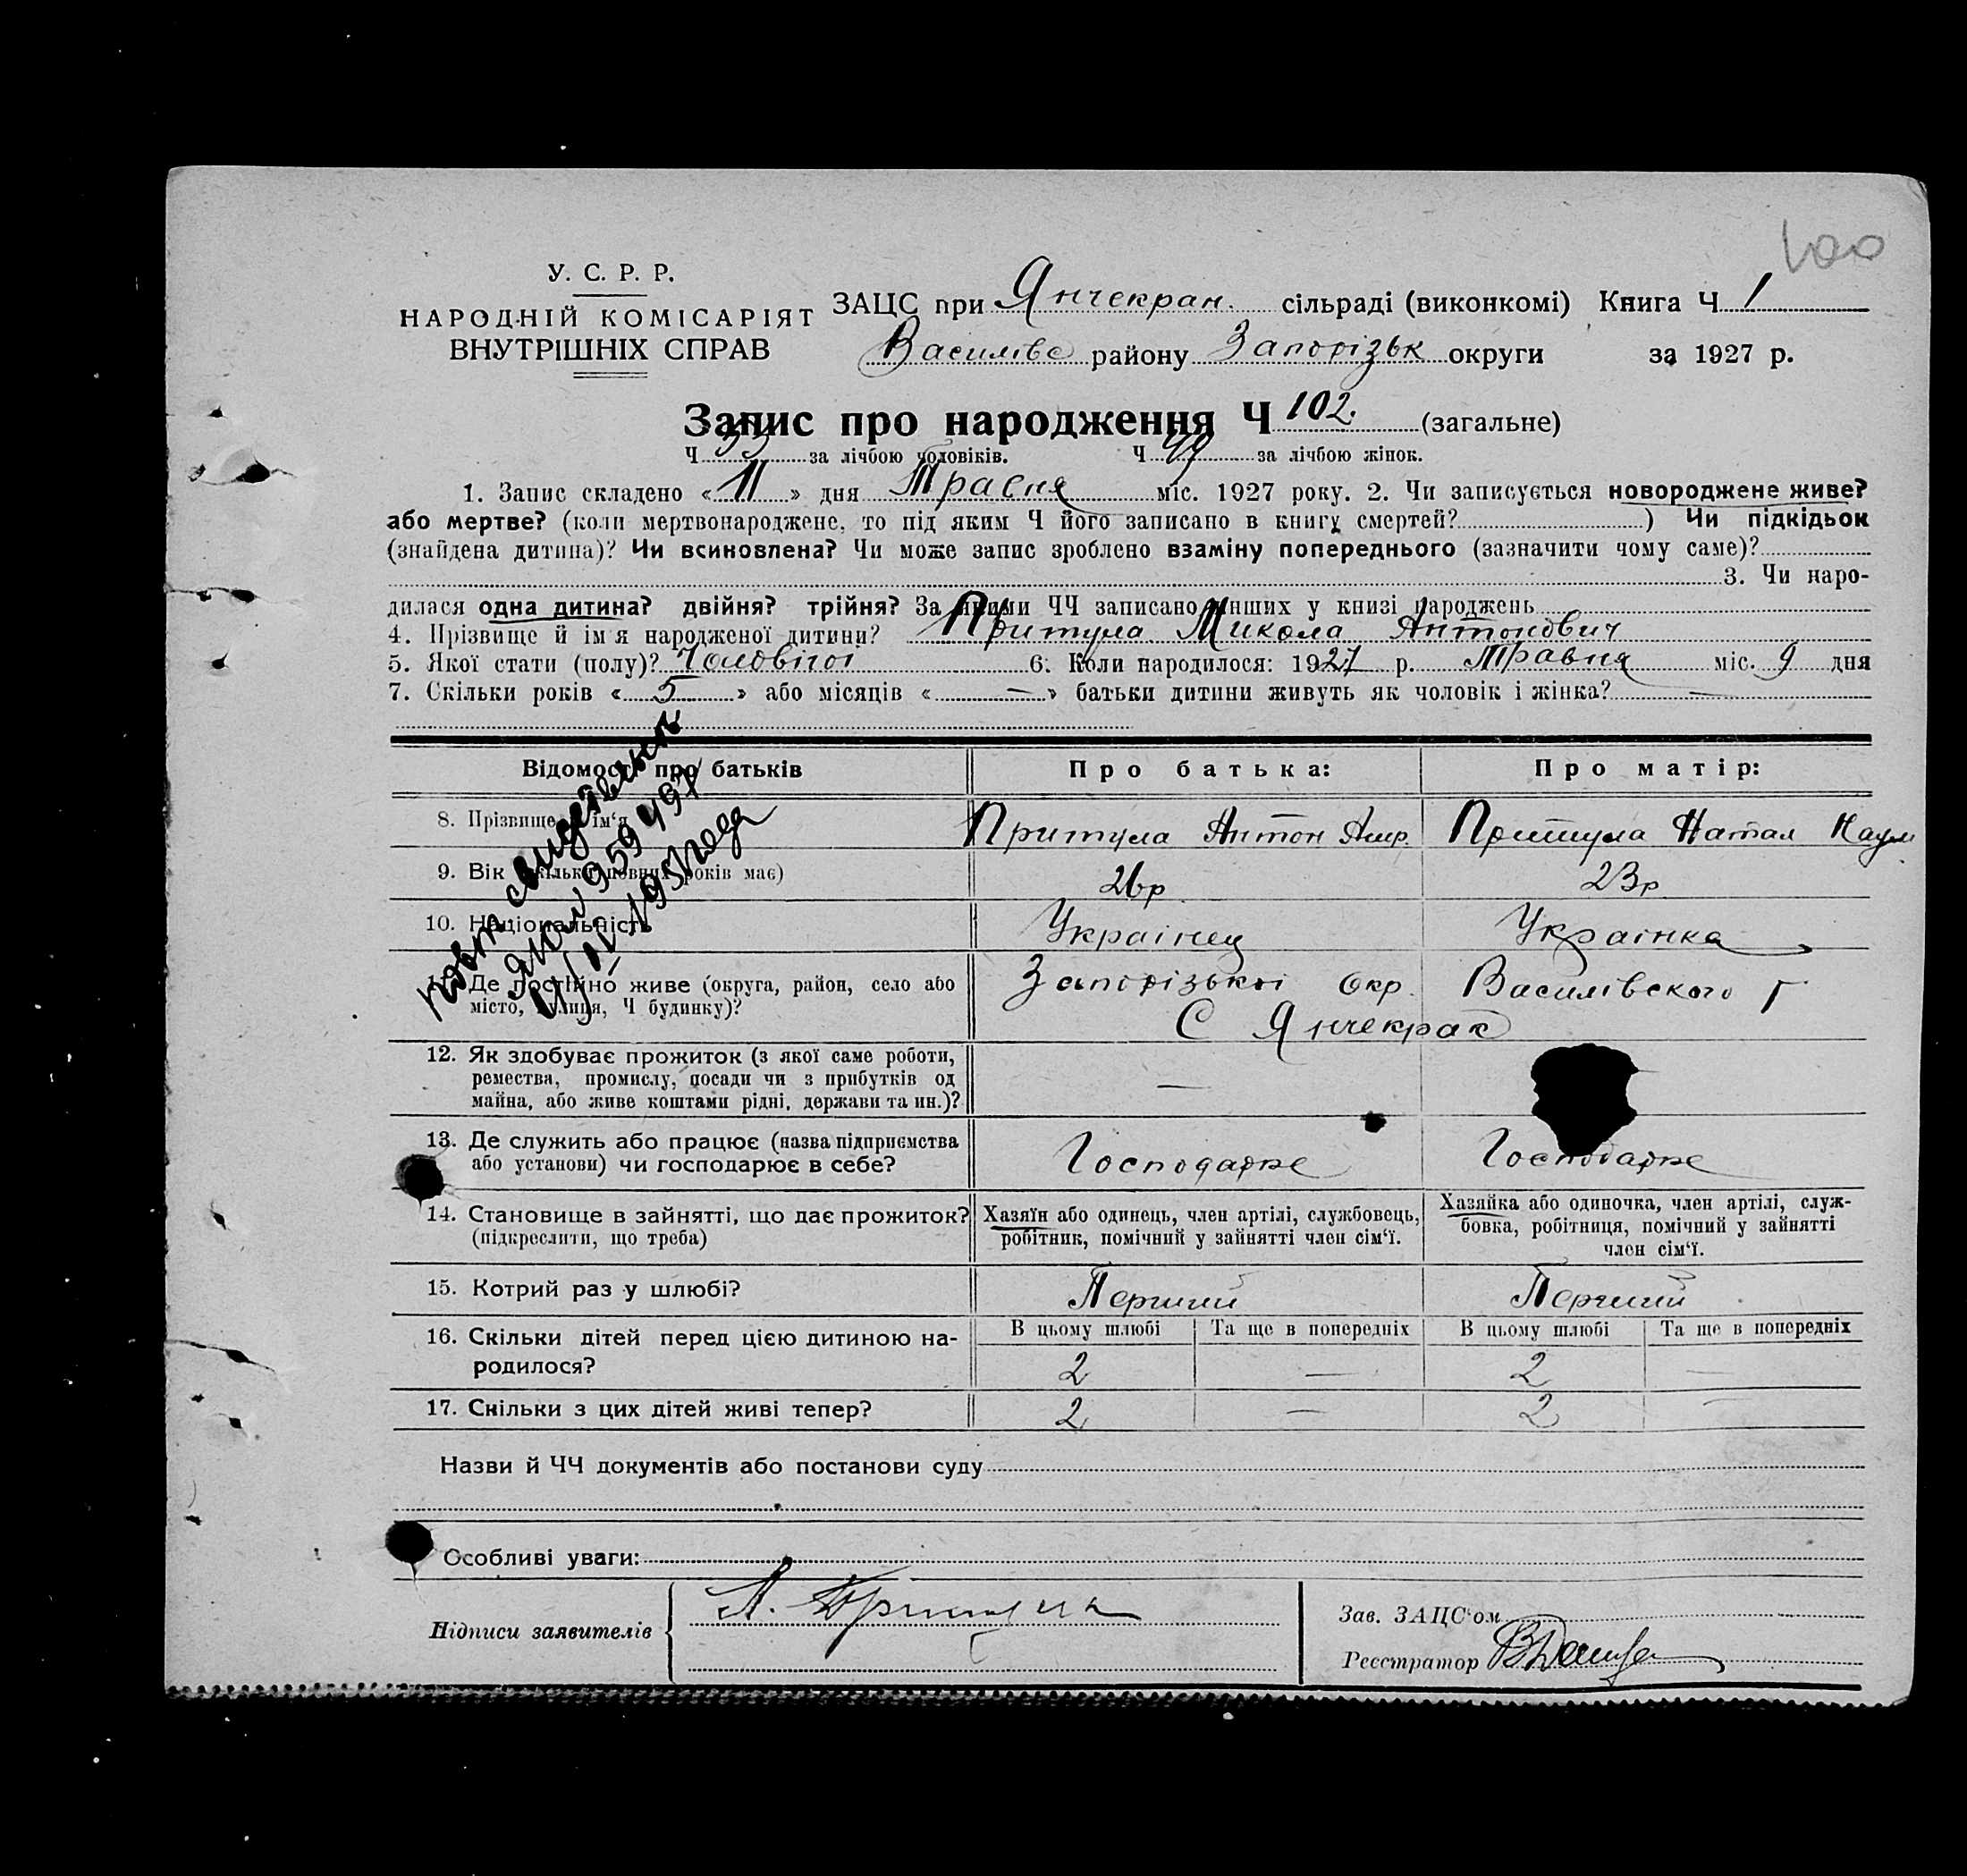 100
У. С. Р. Р.
НАРОДНІЙ КОМІСАРІЯТ
ВНУТРІШНІХ СПРАВ
ЗАЦС при Янчекрак. сільраді (виконкомі) Книга Ч 1
Василівс району Запорізьк округи за 1927 р.
Запис про народження Ч 102. (загальне)
Ч 53 за лічбою чоловіків. Ч 49 за лічбою жінок.
1. Запис складено « 11 » дня Травня міс. 1927 року. 2. Чи записується новороджене живе?
або мертве? (коли мертвонароджене, то під яким Ч його записано в книгу смертей? ) Чи підкідьок
(знайдена дитина)? Чи всиновлена? Чи може запис зроблено взаміну попереднього (зазначити чому саме)?
3. Чи наро-
дилася одна дитина? двійня? трійня? За якими ЧЧ записано инших у книзі народжень
4. Прізвище й ім'я народженої дитини? Притула Микола Антонович
5. Якої стати (полу)? Чоловічої 6. Коли народилося: 1927 р. Травня міс. 9 дня
7. Скільки років « 5 » або місяців « — » батьки дитини живуть як чоловік і жінка? —
Відомості про батьків Про батька: Про матір:
8. Прізвище й ім'я Притула Антон Притула Натал Наум
9. Вік (скільки повних років має) 26р 23р
10. Національність Українец Українка
11. Де постійно живе (округа, район, село або Запорізької Окр. Василівского Г
місто, вулиця, Ч будинку)? С Янчекрак
12. Як здобуває прожиток (з якої саме роботи,
ремества, промислу, посади чи з прибутків од —
майна, або живе коштами рідні, держави та ин.)?
13. Де служить або працює (назва підприємства
або установи) чи господарює в себе? Господарює Господарює
14. Становище в зайнятті, що дає прожиток? Хазяїн або одинець, член артілі, службовець, Хазяйка або одиночка, член артілі, служ-
(підкреслити, що треба) робітник, помічний у зайнятті член сім'ї. бовка, робітниця, помічний у зайнятті
член сім'ї.
15. Котрий раз у шлюбі? Перший Перший
16. Скільки дітей перед цією дитиною на- В цьому шлюбі Та ще в попередніх В цьому шлюбі Та ще в попередніх
родилося? 2 — 2 —
17. Скільки з цих дітей живі тепер? 2 — 2 —
Назви й ЧЧ документів або постанови суду
Особливі уваги:
Підписи заявителів А. Притула
Зав. ЗАЦС'ом
Реєстратор
свидетельст
959497
1951 года